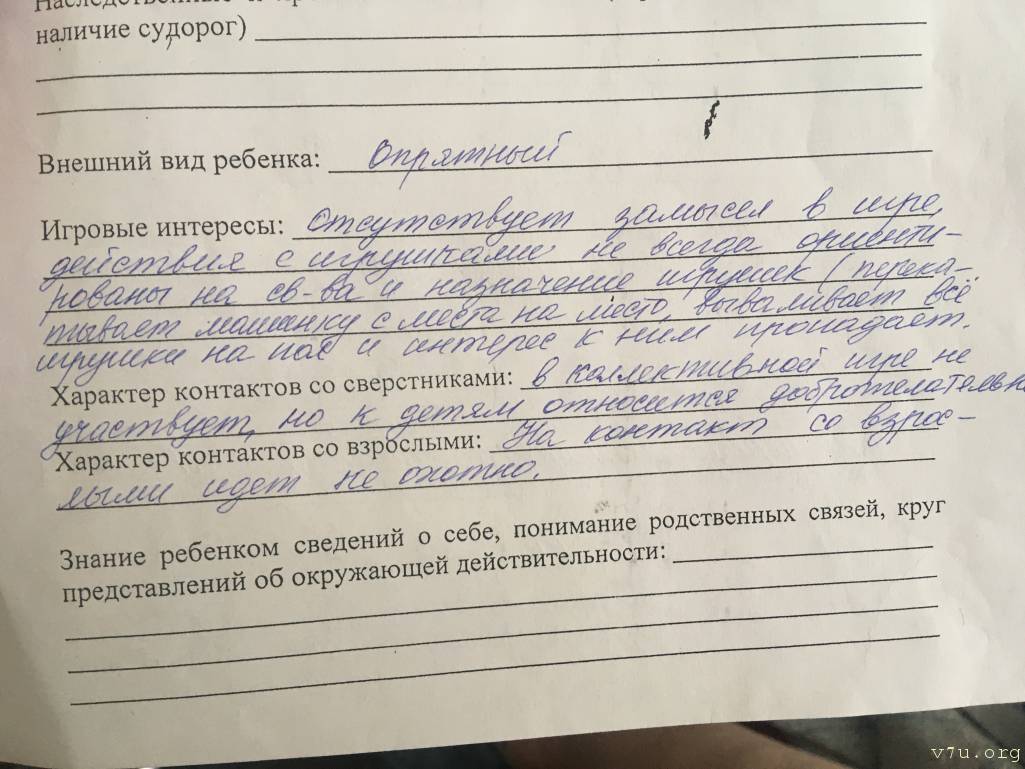 наличие судорог)
Внешний вид ребенка: Опрятный
Игровые интересы: Отсутствует замысел в игре,
действия с игрушками не всегда ориенти-
рованы на св-ва и назначение игрушек (перека-
тывает машинку с места на место, вываливает всё
игрушки на пол и интерес к ним пропадает.
Характер контактов со сверстниками: в коллективной игре не
участвует, но к детям относится доброжелательно
Характер контактов со взрослыми: На контакт со взрос-
лыми идет не охотно.
Знание ребенком сведений о себе, понимание родственных связей, круг
представлений об окружающей действительности:
v7u.org